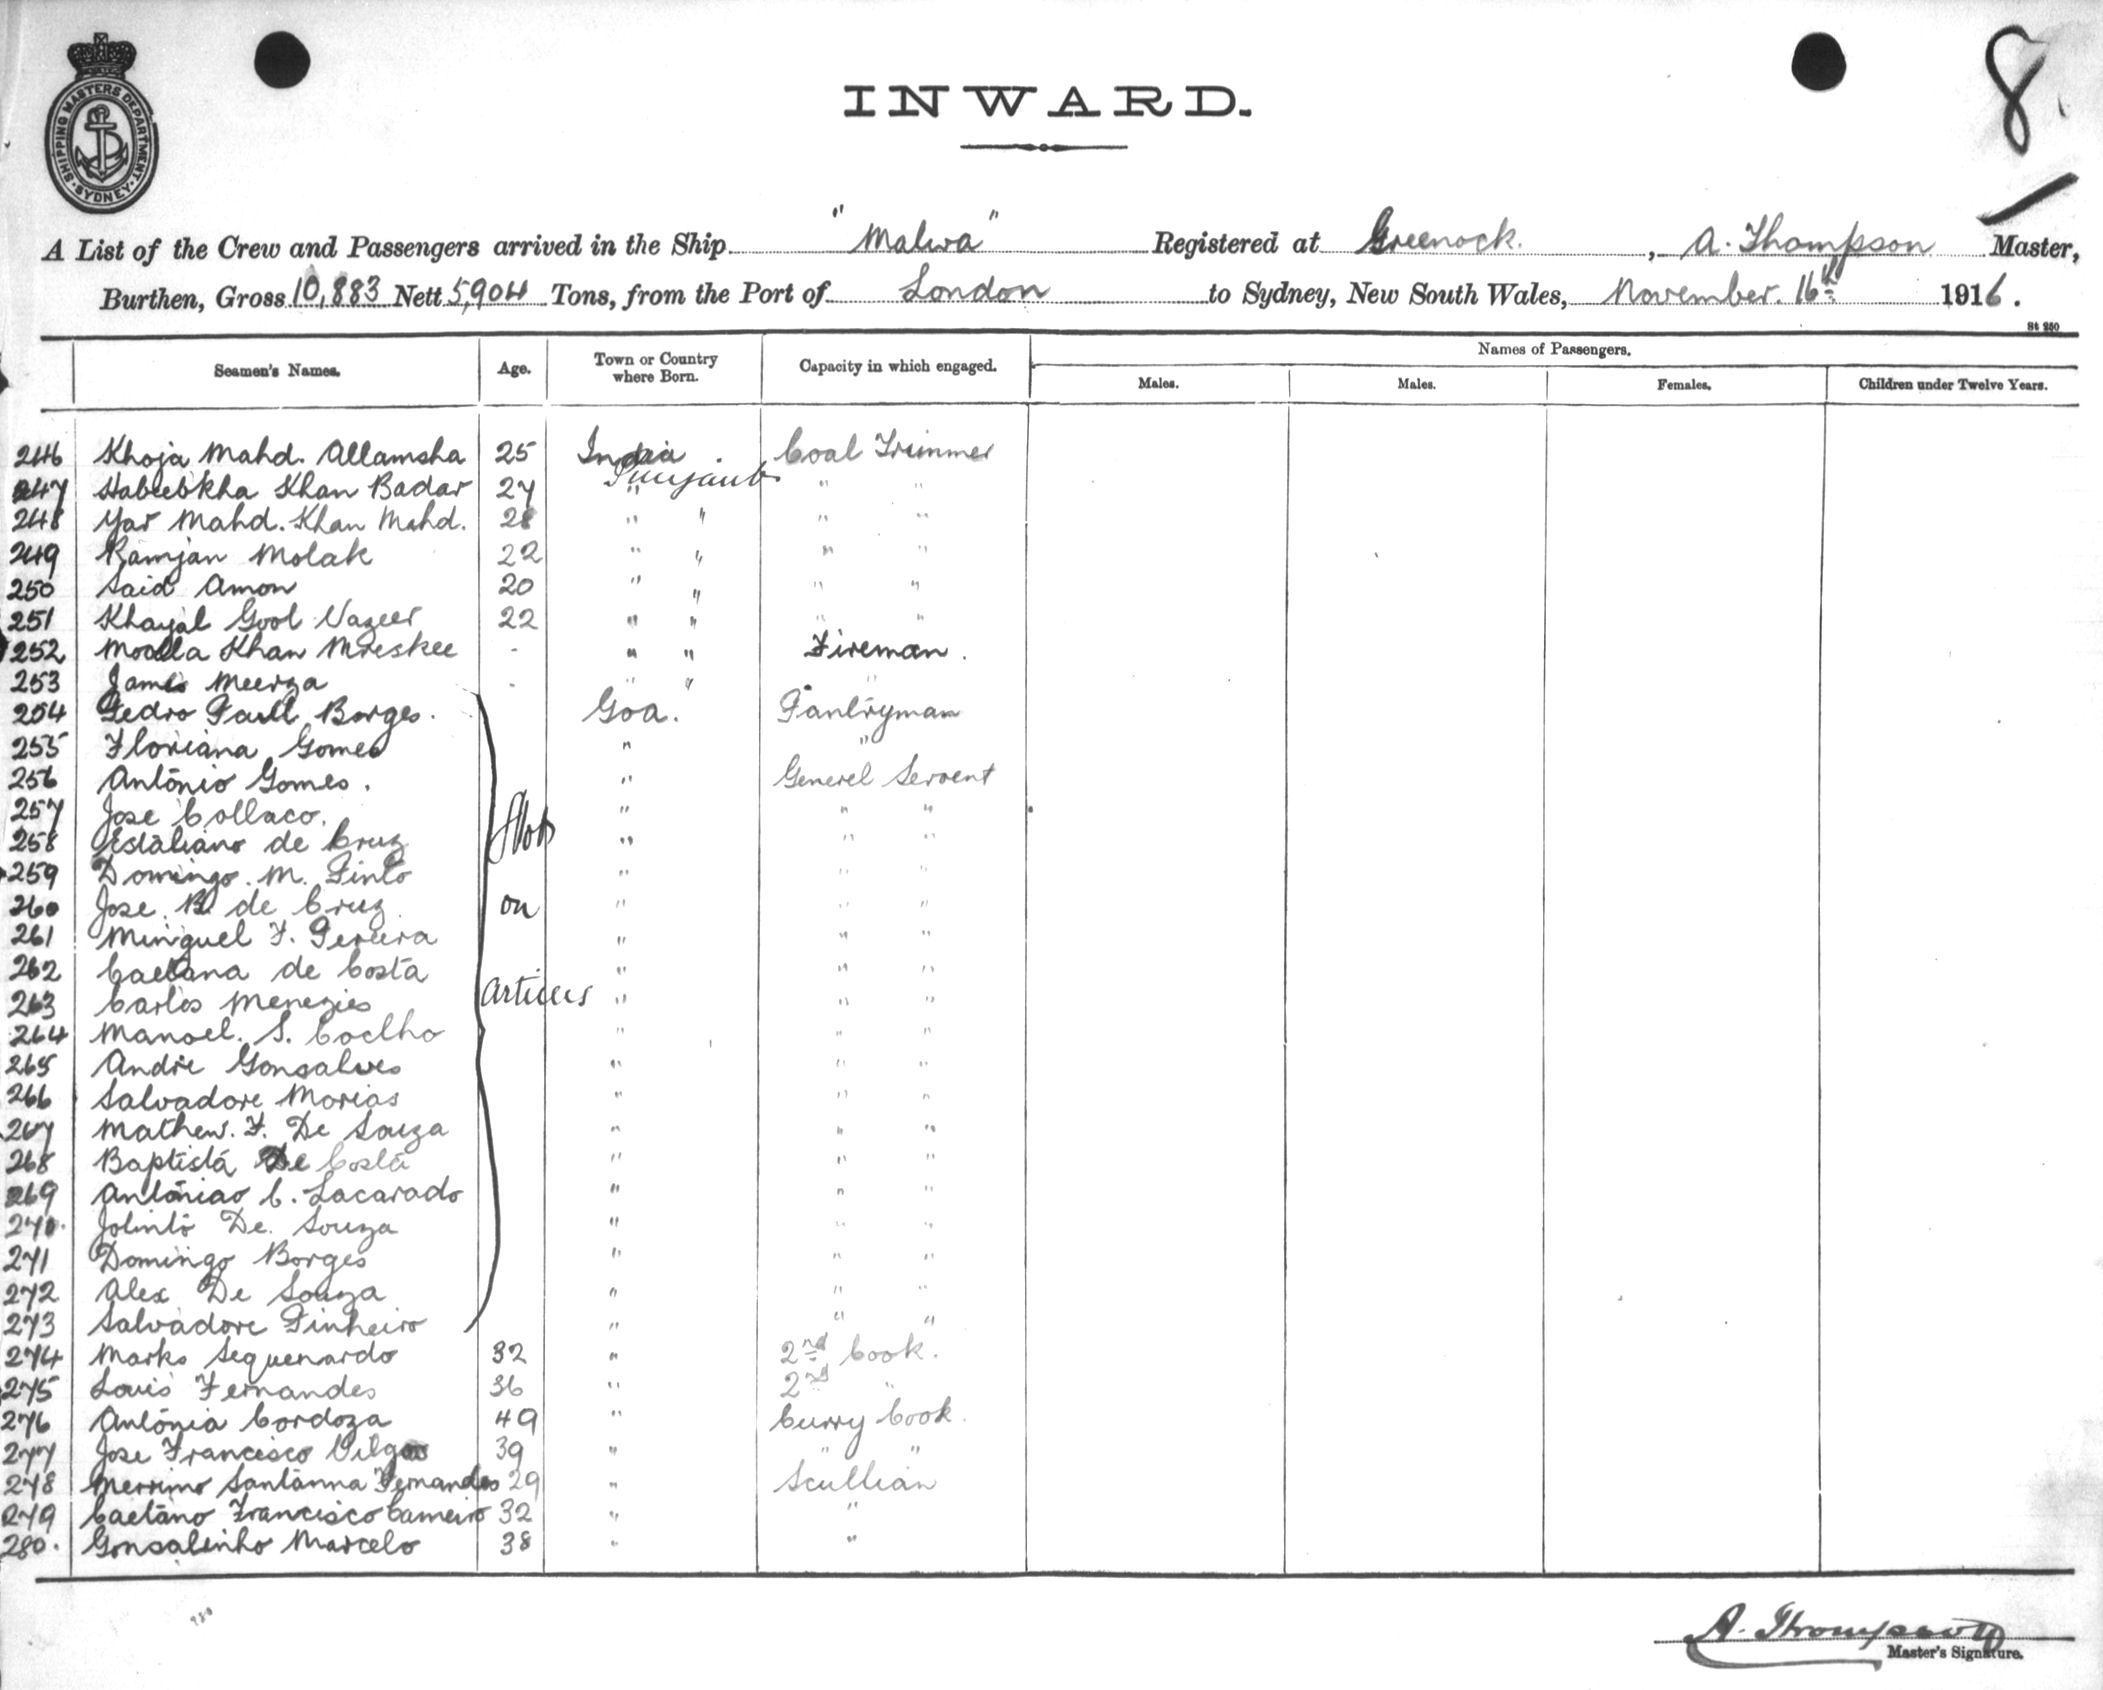 8.
SHIPPING MASTERS DEPARTMENT
SYDNEY
INWARD.
A List of the Crew and Passengers arrived in the Ship "Malwa" Registered at Greenock. , A. Thompson Master,
Burthen, Gross 10,883 Nett 5,904 Tons, from the Port of London to Sydney, New South Wales, November. 16th 1916.
St 250
Seamen's Names. Age. Town or Country where Born. Capacity in which engaged. Names of Passengers.
Males. Males. Females. Children under Twelve Years.
246 Khoja Mahd. Allamsha 25 India Coal Trimmer
247 Habeebkha Khan Badar 27 " Punjaub " "
248 Yar Mahd. Khan Mahd. 28 " " " "
249 Ramjan Molak 22 " " " "
250 Said Amon 20 " " " "
251 Khayal Gool Vazeer 22 " " " "
252 Moolla Khan Mreskee - " " Fireman.
253 James Meerza - " " "
254 Pedro Paull Borges. Goa. Pantryman
255 Floriana Gomes " "
256 Antonio Gomes. " Generel Servent
257 Jose Collaco. " " "
258 Estaliano de Cruz Not " " "
259 Domingo. M. Pinto " " "
260 Jose. B. de Cruz on " " "
261 Minguel F. Pereira " " "
262 Caetana de Costa " " "
263 Carlos Menezies Articles " " "
264 Manoel. S. Coelho " " "
265 Andre Gonsalves " " "
266 Salvadore Morias " " "
267 Mathew. F. De Souza " " "
268 Baptista De Costa " " "
269 Antoniao C. Lacarado " " "
270. Jolinto De Souza " " "
271 Domingo Borges " " "
272 Alex De Souza " " "
273 Salvadore Pinheiro " " "
274 Marks Sequenardo 32 " 2nd Cook.
275 Louis Fernandes 36 " 2nd "
276 Antonia Cordoza 49 " Curry Cook.
277 Jose Francisco 39 " " "
278 Merrimo Santanna Fernandes 29 " Scullian
279 Caetano Francisco Cameiro 32 " "
280. Gonsalinho Marcelo 38 " "
A. Thompson
Master's Signature.